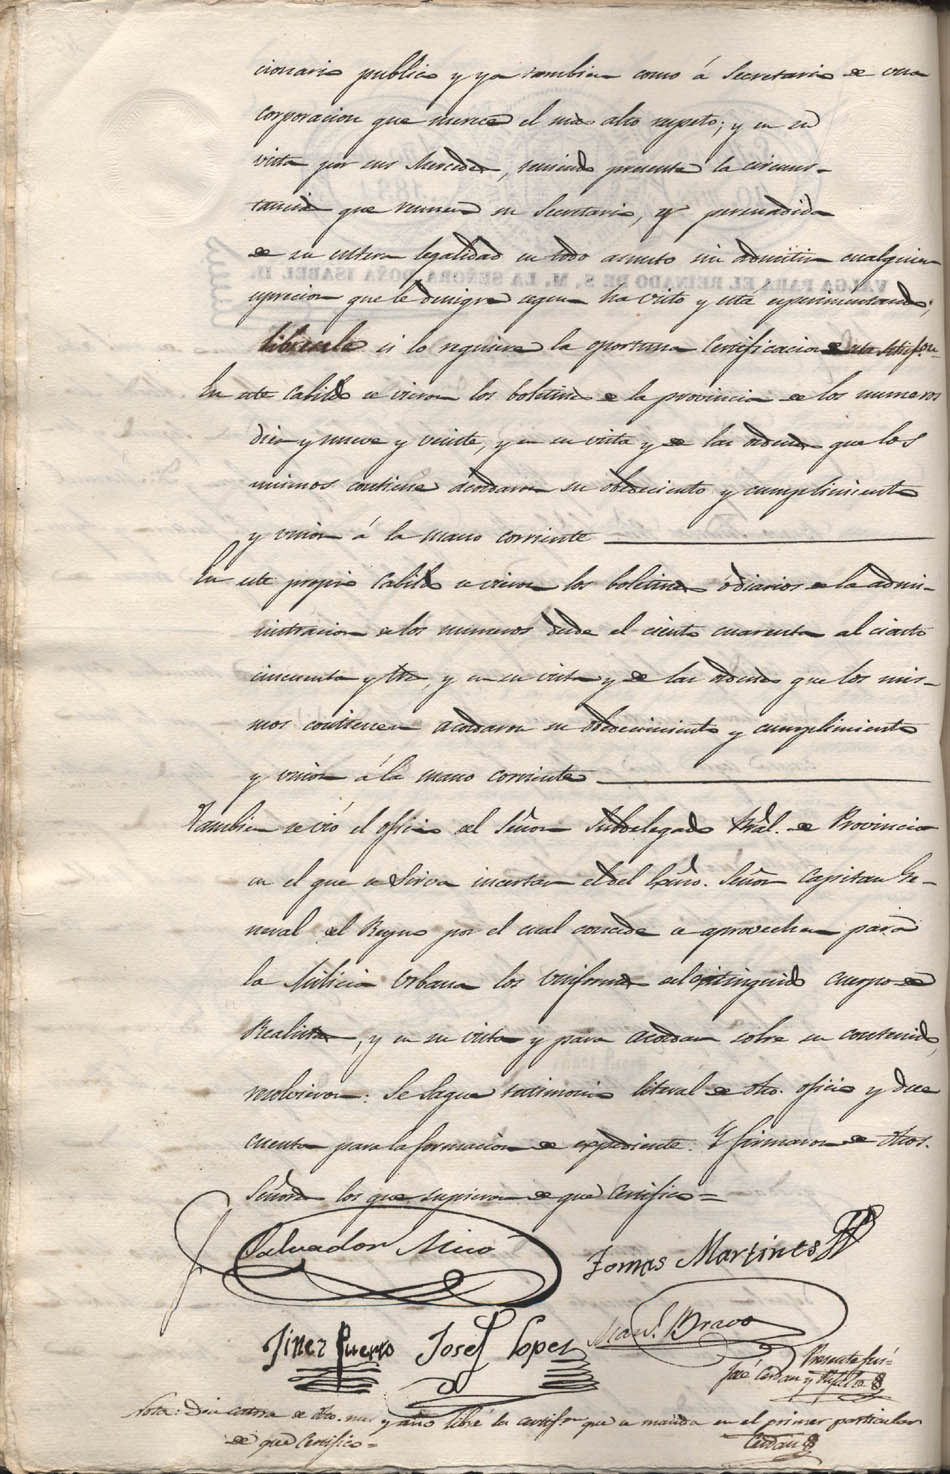 cionario publico y ya tambien como á Secretario de una
corporacion que merece el mas alto respeto; y en su
vista por sus Mercedes, teniendo presente la circuns-
tancia que reune su Secretario, y persuadida
de su entera legalidad en todo asunto sin admitir cualquiera
espresion que le denigre segun ha visto y está esperimentando;
libresele si lo requiere la oportuna Certificacion
En este Cabildo se vieron los boletines de la provincia de los numeros
diez y nueve y veinte, y en su vista y de las ordenes que los
mismos contiene acordaron su obedeciento y cumplimiento
y union á la mano corriente
En este propio Cabildo se vieron los boletines ó diarios de la admi-
nistracion de los numeros desde el ciento cuarenta al ciento
cincuenta y tres, y en su vista y de las ordenes que los mis-
mos contienen acordaron su obedecimiento y cumplimiento
y union á la mano corriente
Tambien se vió el oficio del Señor Subdelegado Pral. de Provincia
en el que se sirve incertar el del Exmo. Señor Capitan Ge-
neral del Reyno por el cual concede se aprovechen para
la Milicia Urbana los uniformes del extinguido cuerpo de
Realistas, y en su vista y para acordar sobre su contenido,
resolvieron: Se saque testimonio literal de dho. oficio y dee
cuenta para la formacion de expediente. Y firmaron de dhos.
Señores los que supieron de que Certifico=
Salvador Mico
Tomas Martines
Jinez Puerto
Josef Lopez
Manl. Bravo
Presente fui
José Cerdan y
Nota: Dia de dho. mes y año libré la certifon que se manda en el primer particular
de que Certifico=
Cerdan
VALGA PARA EL REINADO DE S. M. LA SEÑORA DOÑA ISABEL II.